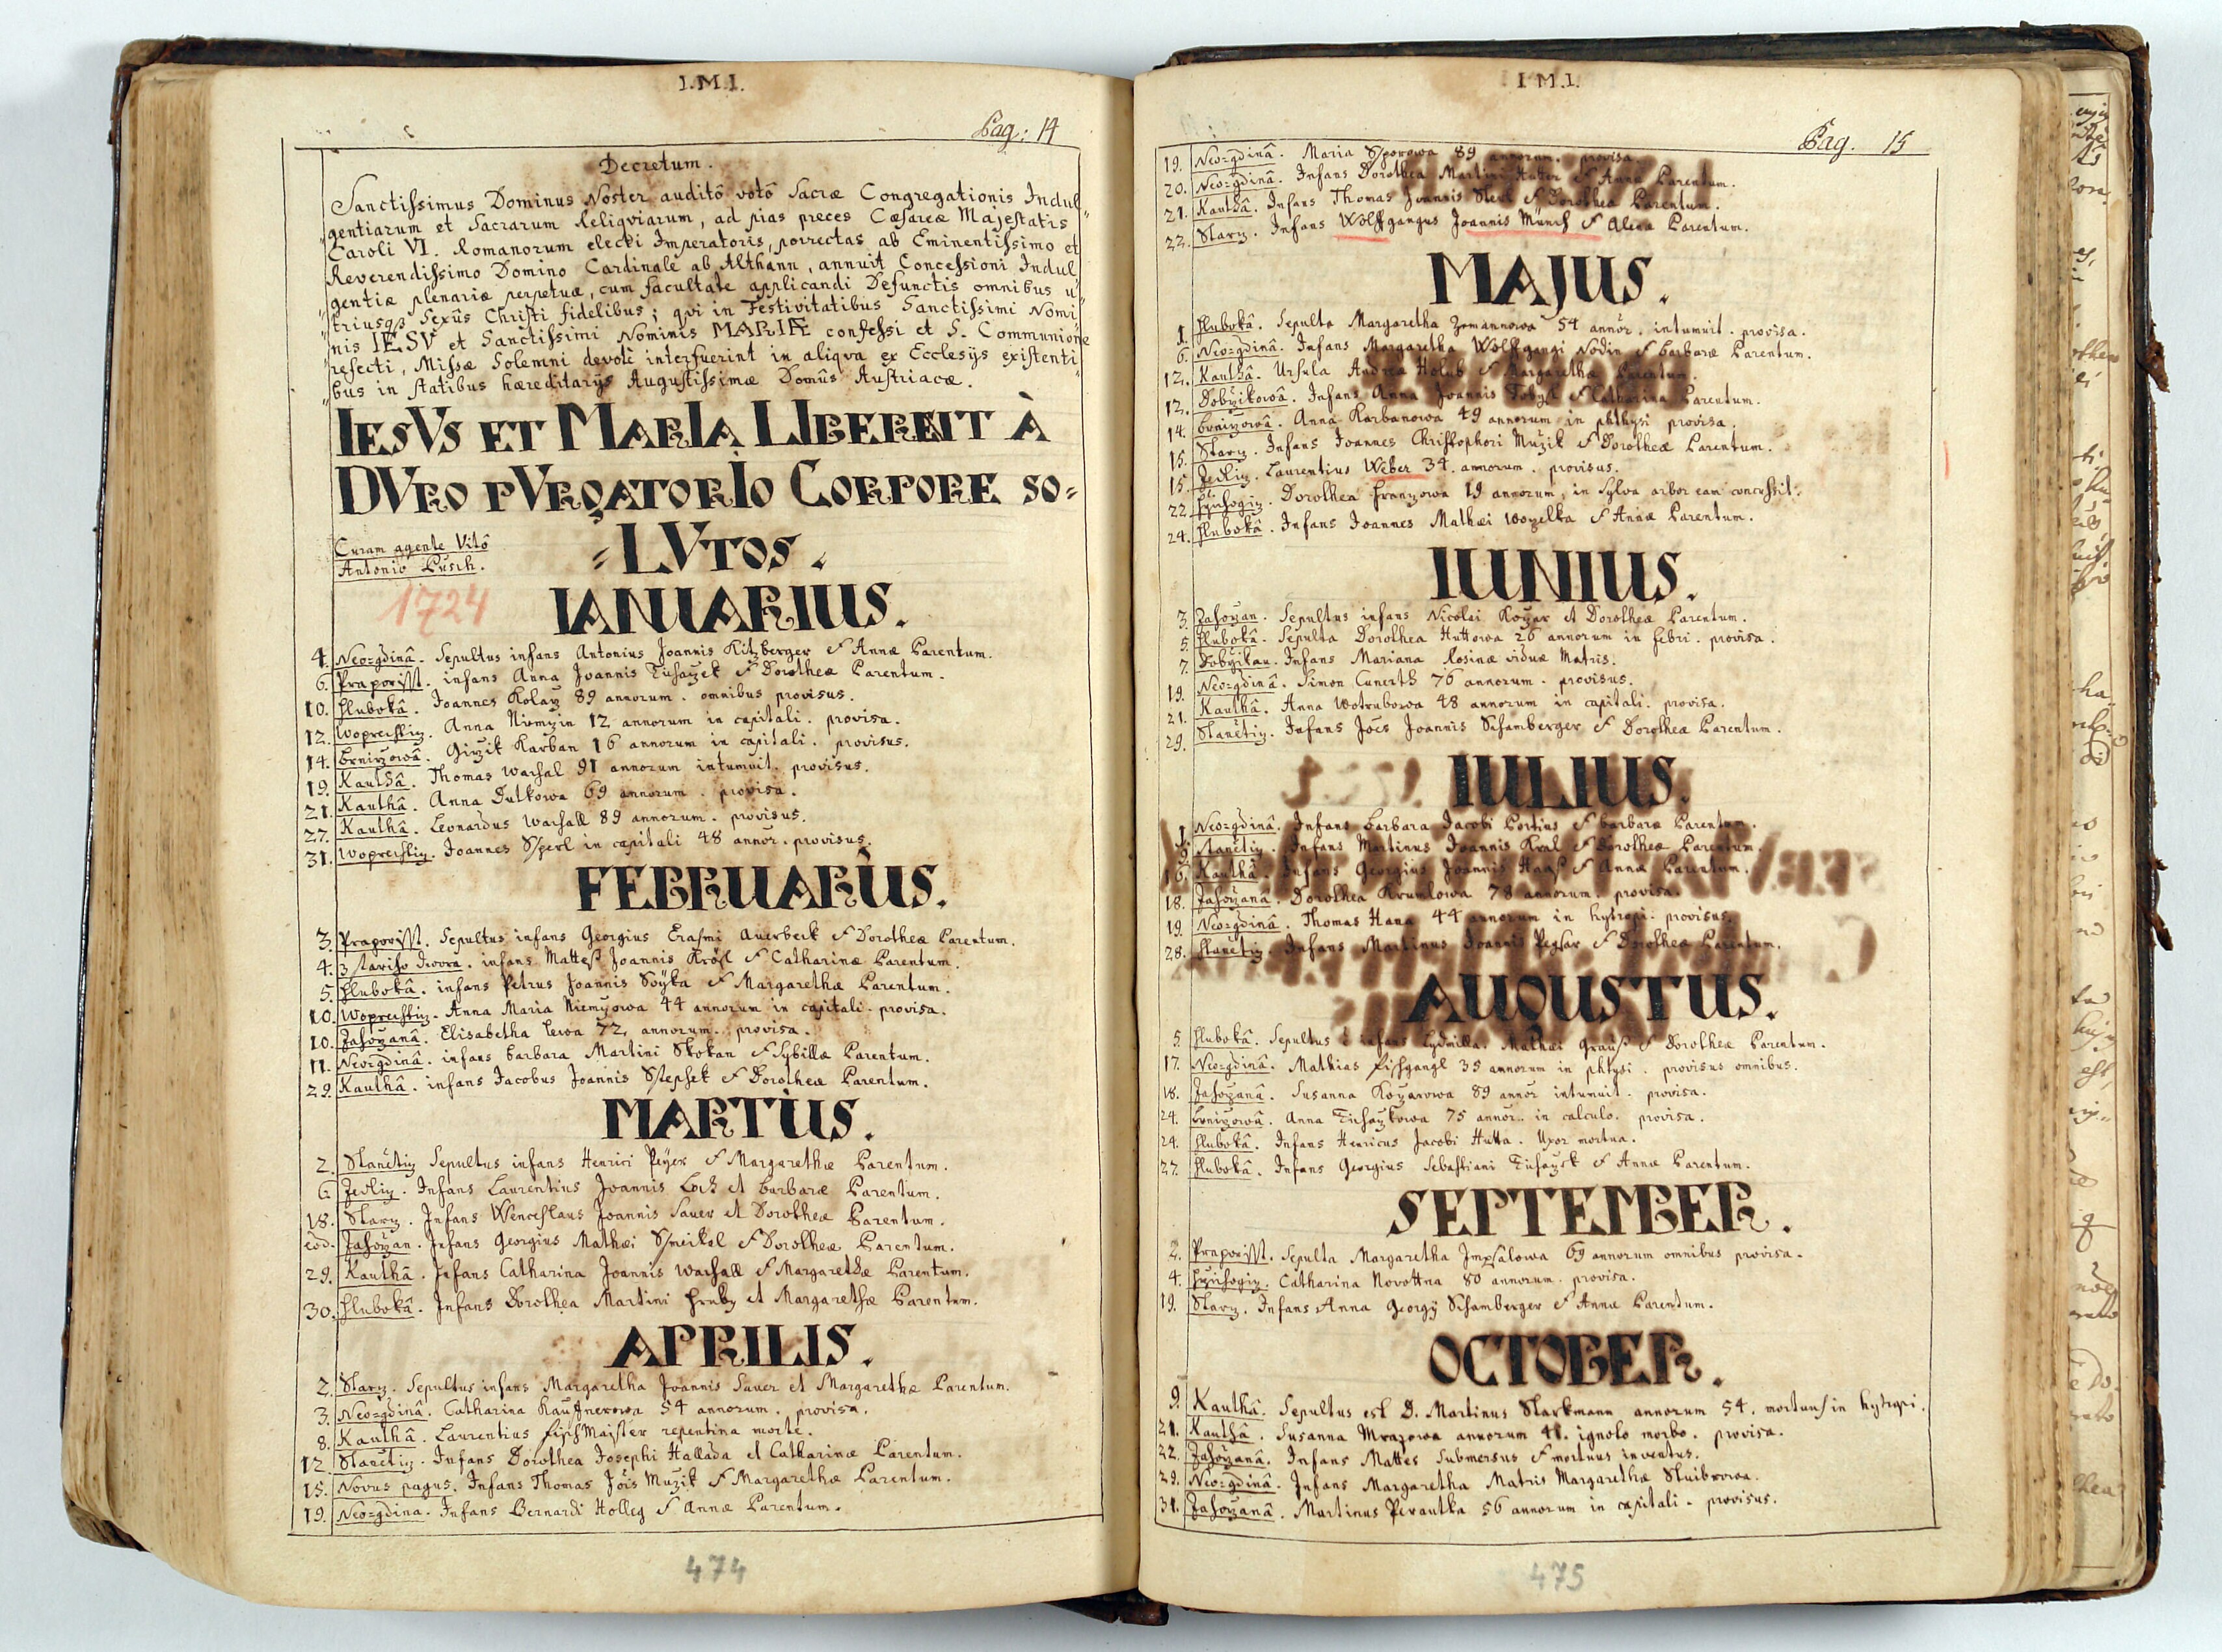 I.M.I.
Pag: 14
Decretum.
Sanctissimus Dominus Noster auditô votô Sacræ Congregationis Indul
gentiarum et Sacrarum Reliqviarum, ad pias preces Cæsareæ Majestatis
Caroli VI. Romanorum electi Imperatoris, porrectas ab Eminentissimo et
Reverendissimo Domino Cardinale ab Althann, annuit Concessioni Indul
gentiæ plenariæ perpetuæ, cum facultate applicandi Defunctis omnibus u
triusqz Sexûs Christi fidelibus; qvi in Festivitatibus Sanctissimi Nomi
nis IESV et Sanctissimi Nominis MARIÆ confessi et S. Communione
refecti, Missæ Solemni devoti interfuerint in aliqva ex Ecclesijs existenti
bus in statibus hæreditarijs Augustissimæ Domûs Austriacæ.
IesVs et MarIa LIberent à
DVro pVrgatorIo Corpore so=
=LVtos.
Curam agente Vitô
Antonio Pusch.
1724
IANUARIUS.
4. Neo=gdinâ. Sepultus infans Antonius Joannis Kitzberger & Annæ Parentum.
6. Praporisst. infans Anna Joannis Tuhaczek & Dorotheæ Parentum.
10. Hlubokâ. Joannes Kolarz 89 annorum. omnibus provisus.
12. Woprechtiz. Anna Niemczin 12 annorum in capitali. provisa.
14. Brnirzowâ. Girzik Karban 16 annorum in capitali. provisus.
19. Kauthâ. Thomas Wachal 91 annorum intumuit. provisus.
21. Kauthâ. Anna Dutkowa 69 annorum. provisa.
27. Kauthâ. Leonardus Wachall 89 annorum. provisus.
31. Woprechtiz. Joannes Sperl in capitali 48 annor. provisus.
FEBRUARIUS.
3. Praporisst. Sepultus infans Georgius Erasmi Auerbeck & Dorotheæ Parentum.
4. z stariho dwora. infans Mattess Joannis Krösl & Catharinæ Parentum.
5. Hlubokâ. infans Petrus Joannis Soyka & Margarethæ Parentum.
10. Woprechtiz. Anna Maria Niemczowa 44 annorum in capitali. provisa.
10. Zahorzanâ. Elisabetha Lewa 72 annorum. provisa.
11. Neo=gdinâ. infans Barbara Martini Skokan & Sybillæ Parentum.
29. Kauthâ. infans Jacobus Joannis Stephek & Dorotheæ Parentum.
MARTIUS.
2. Stanétiz Sepultus infans Henrici Peyer & Margarethæ Parentum.
6. Zedliz. Infans Laurentius Joannis Loch et Barbaræ Parentum.
18. Starz. Infans Wenceslaus Joannis Sauer et Dorotheæ Parentum.
eod. Zahorzan. Infans Georgius Mathæi Smeikal & Dorotheæ Parentum.
29. Kauthâ. Infans Catharina Joannis Wachall & Margarethæ Parentum.
30. Hlubokâ. Infans Dorothea Martini Hruby et Margarethæ Parentum.
APRILIS.
2. Starz. Sepultus infans Margaretha Joannis Sauer et Margarethæ Parentum.
3. Neo=gdinâ. Catharina Kauffnerowa 54 annorum. provisa.
8. Kauthâ. Laurentius FischMaister repentina morte.
12. Stanétiz. Infans Dorothea Josephi Hallada et Catharinæ Parentum.
15. Novus pagus. Infans Thomas Jois Muzik & Margarethæ Parentum.
19. Neo=gdina. Infans Bernardi Holleg & Annæ Parentum.
474
I.M.I.
Pag. 15
19. Neo=gdinâ. Maria Sporowa 89 annorum. provisa.
20. Neo=gdinâ. Infans Dorothea Martini Hutter & Annæ Parentum.
21. Kauthâ. Infans Thomas Joannis Sterl & Dorothea Parentum.
22. Starz. Infans Wolffgangus Joannis Münch & Alena Parentum.
MAJUS.
1. Hlubokâ. Sepulta Margaretha Zemannowa 54 annor. intumuit. provisa.
6. Neo=gdinâ. Infans Margaretha Wolffgangi Nodin & Barbaræ Parentum.
12. Kauthâ. Ursula Andrea Holub & Margarethæ Parentum.
12. Dobrzikowâ. Infans Anna Joannis Tobyl & Catharina Parentum.
14. Brnirzowâ. Anna Karbanowa 49 annorum in phthysi provisa.
15. Starz. Infans Joannes Christophori Muzik & Dorotheæ Parentum.
15. Zedliz. Laurentius Weber 34. annorum. provisus.
22. Hrzichogiz. Dorothea Franzowa 19 annorum, in sylva arbor eam concussit.
24. Hlubokâ. Infans Joannes Mathæi Wopelka & Annæ Parentum.
IUNIUS.
3. Zahorzan. Sepultus infans Nicolai Kozar et Dorotheæ Parentum.
5. Hlubokâ. Sepulta Dorothea Huttowa 26 annorum in febri. provisa.
7. Dobrzikau. Infans Mariana Rosinæ viduæ Matris.
19. Neo=gdinâ. Simon Cunerth 76 annorum. provisus.
21. Kauthâ. Anna Wotrubowa 48 annorum in capitali. provisa.
29. Stanétiz. Infans Joes Joannis Schamberger & Dorotheæ Parentum.
IULIUS.
1. Neo=gdinâ. Infans Barbara Jacobi Portius & Barbaræ Parentum.
9. Stanétiz. Infans Martinus Joannis Kral & Dorotheæ Parentum
16. Kauthâ. Infans Georgius Joannis Haas & Annæ Parentum.
18. Zahorzanâ. Dorothea Krumlowa 78 annorum. provisa.
19. Neo=gdinâ. Thomas Hana 44 annorum in hytropi. provisus.
28. Stanétiz. Infans Martinus Joannis Pegsar & Dorothea Parentum.
AUGUSTUS.
5 Hlubokâ. Sepultus infans Lydmilla Mathæi Grauss & Dorotheæ Parentum.
17. Neo=gdinâ. Mathias Fischgangl 35 annorum in phtysi. provisus omnibus.
18. Zahorzanâ. Susanna Kozarowa 89 annor intumuit. provisa.
24. Brnirzowâ. Anna Tuhaczkowa 75 annor. in calculo. provisa.
24. Hlubokâ. Infans Henricus Jacobi Hutta. Uxor mortua.
27. Hlubokâ. Infans Georgius Sebastiani Tuhaczek & Annæ Parentum.
SEPTEMBER.
2. Praporisst. Sepulta Margaretha Impsalowa 69 annorum omnibus provisa.
4. Hrzichogiz. Catharina Novottna 80 annorum. provisa.
19. Starz. Infans Anna Georgij Schamberger & Annæ Parentum.
OCTOBER.
9. Kauthâ. Sepultus est D. Martinus Starkmann annorum 54. mortuus in hytropi.
21. Kauthâ. Susanna Mrazowa annorum 41. ignoto morbo. provisa.
22. Zahorzanâ. Infans Mattes Submersus & mortuus inventus.
29. Neo=gdinâ. Infans Margaretha Matris Margarethæ Stuibrowa.
31. Zahorzanâ. Martinus Perautka 56 annorum in capitali. provisus.
475